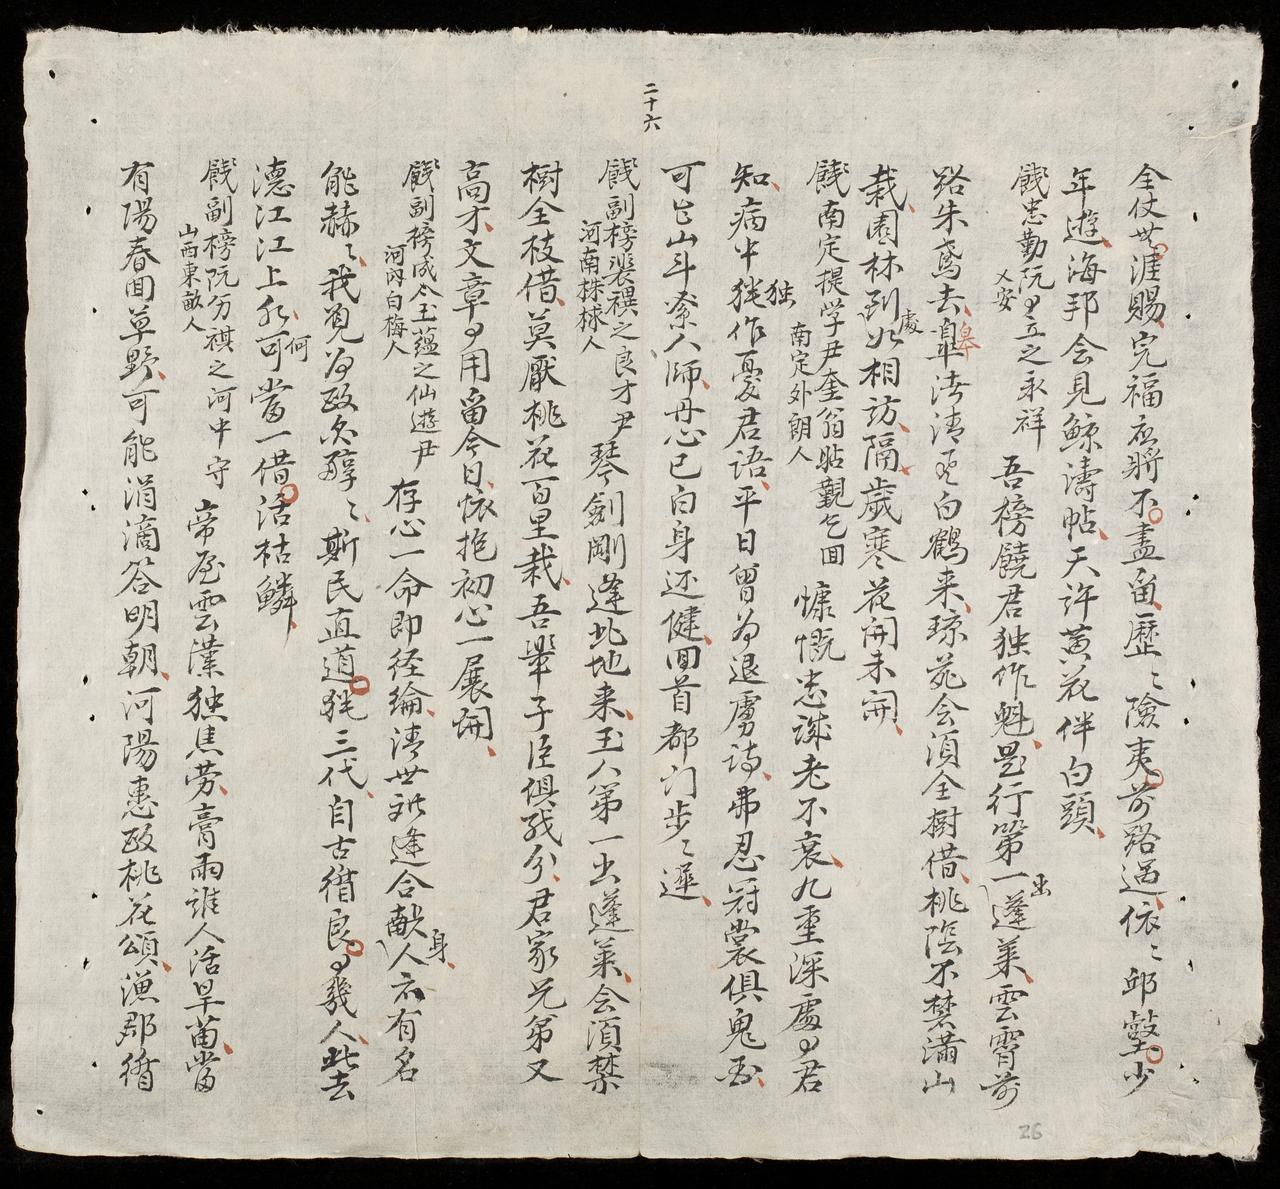 二十六
全仗生涯賜完福応將不盡留歷〻險夷前路過依〻邱壑少
年遊海邦会見鯨濤帖天許黄花伴白頭
餞忠勤阮立之永祥
乂安
吾榜饒君独作魁是行第一蓬莱雲霄前
出
路朱鳶去皐清白鶴来琼苑会須全樹借桃陰不禁滿山
皋
栽園林到処相訪隔歲寒花開未開
處
餞南定提学尹奎翁貼覲乞回
南定外朗人
慷慨忠誠老不衰九重深處君
知病中独作憂君語平日曾為退虜詩弗忍冠裳俱鬼
独
可岂山斗众人師丹心已白身还健回首都门步〻遲
餞副榜裴襈之良才尹
河南株梂人
琴劍剛逢北地来玉人第一出蓬莱会須禁
樹全枝借莫厭桃花百里栽吾舉子臣俱残分君家兄弟又
高才文章用留今日懷抱初心一展開
餞副榜成今玉蘊之仙遊尹
河內白梅人
存心一命即径綸清世逢合献人示有名
身
能赫〻我見為政久醇〻斯民直道独三代自古循良幾人此去
德江江上水可當一借活枯鱗
何
餞副榜阮分祺之河中守
山西東畝人
帝屋雲漢独焦劳膏雨誰人活旱苗當
有陽春回草野可能涓滴答明朝河陽惠政桃花頌漁郡循
26